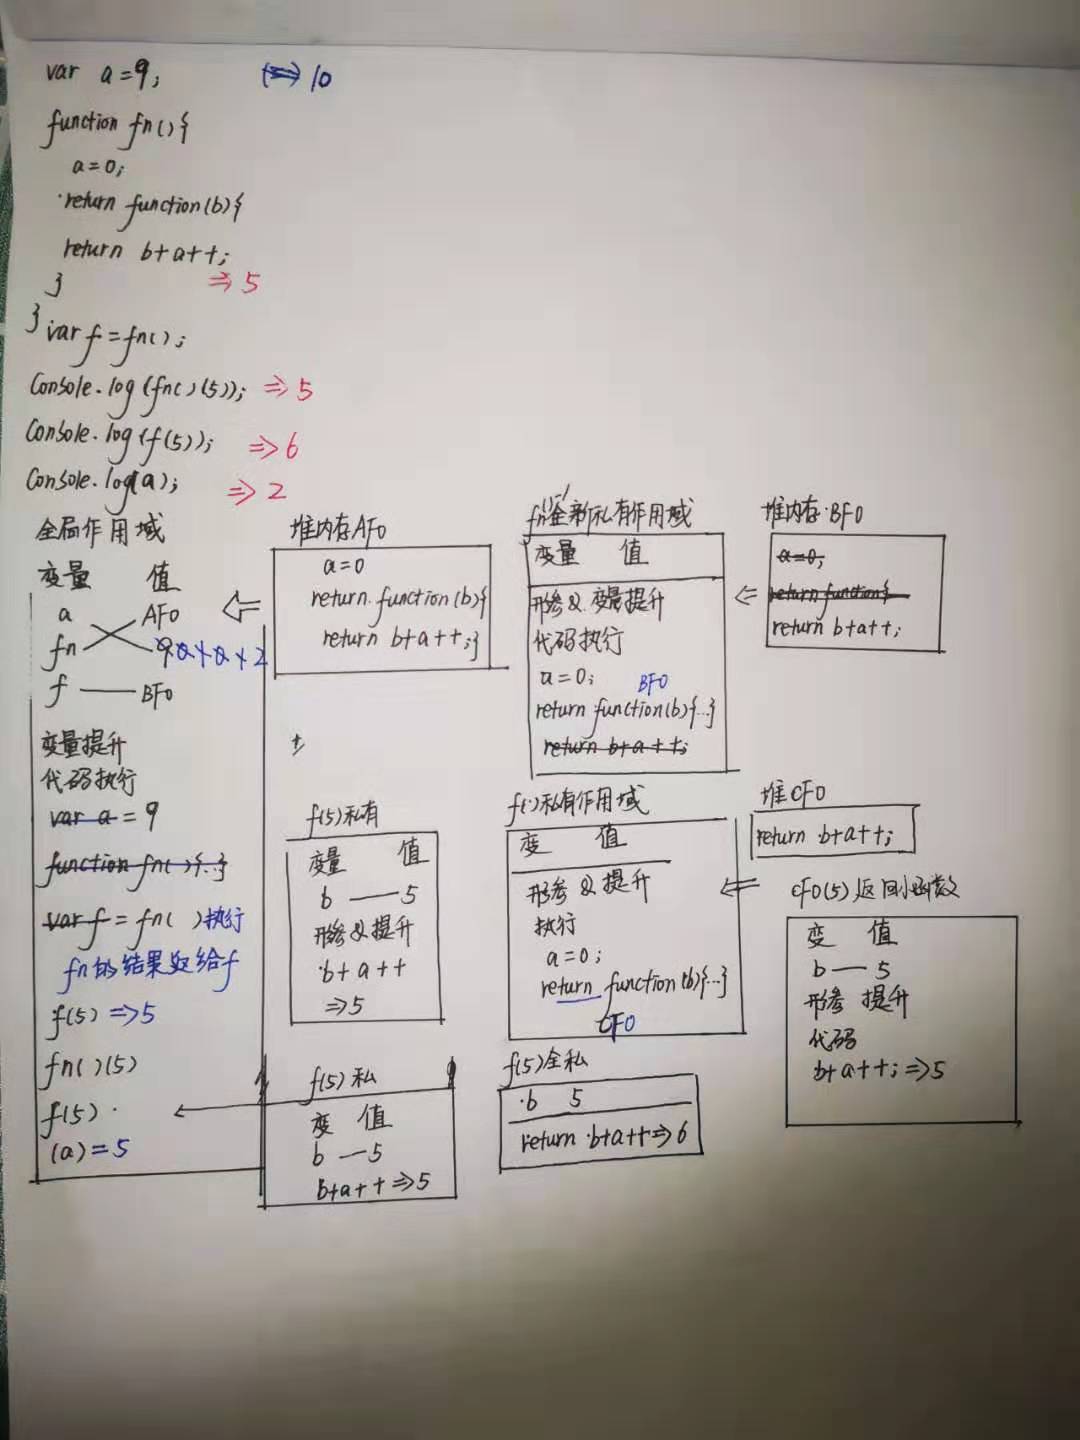 var a=9;
10
function fn(){
a=0;
return function(b){
return b+a++;
}
⇒5
}
var f=fn();
Console.log(fn()(5)); ⇒5
Console.log(f(5)); ⇒6
Console.log(a); ⇒2
全局作用域
变量 值
a AFO
fn 2
f BFO
变量提升
代码执行
var a = 9
function fn(){...}
var f = fn( )执行
fn的结果返给f
f(5)⇒5
fn( )(5)
f(5)
(a)=5
堆内存AFO
a=0
return function(b){
return b+a++;}
全新私有作用域
变量 值
形参&变量提升
代码执行
a=0;
BFO
return function(b){...}
return b+a++;
堆内存BFO
a=0;
return function{
return b+a++;
f(5)私有
变量 值
b — 5
形参&提升
b+a++
⇒5
f()私有作用域
变 值
形参&提升
执行
a=0;
return function(b){...}
CFO
堆CFO
return b+a++;
CFO(5)返回小函数
变 值
b — 5
形参 提升
代码
b+a++;⇒5
f(5)私
变 值
b — 5
b+a++⇒5
f(5)全私
b 5
return b+a++⇒6